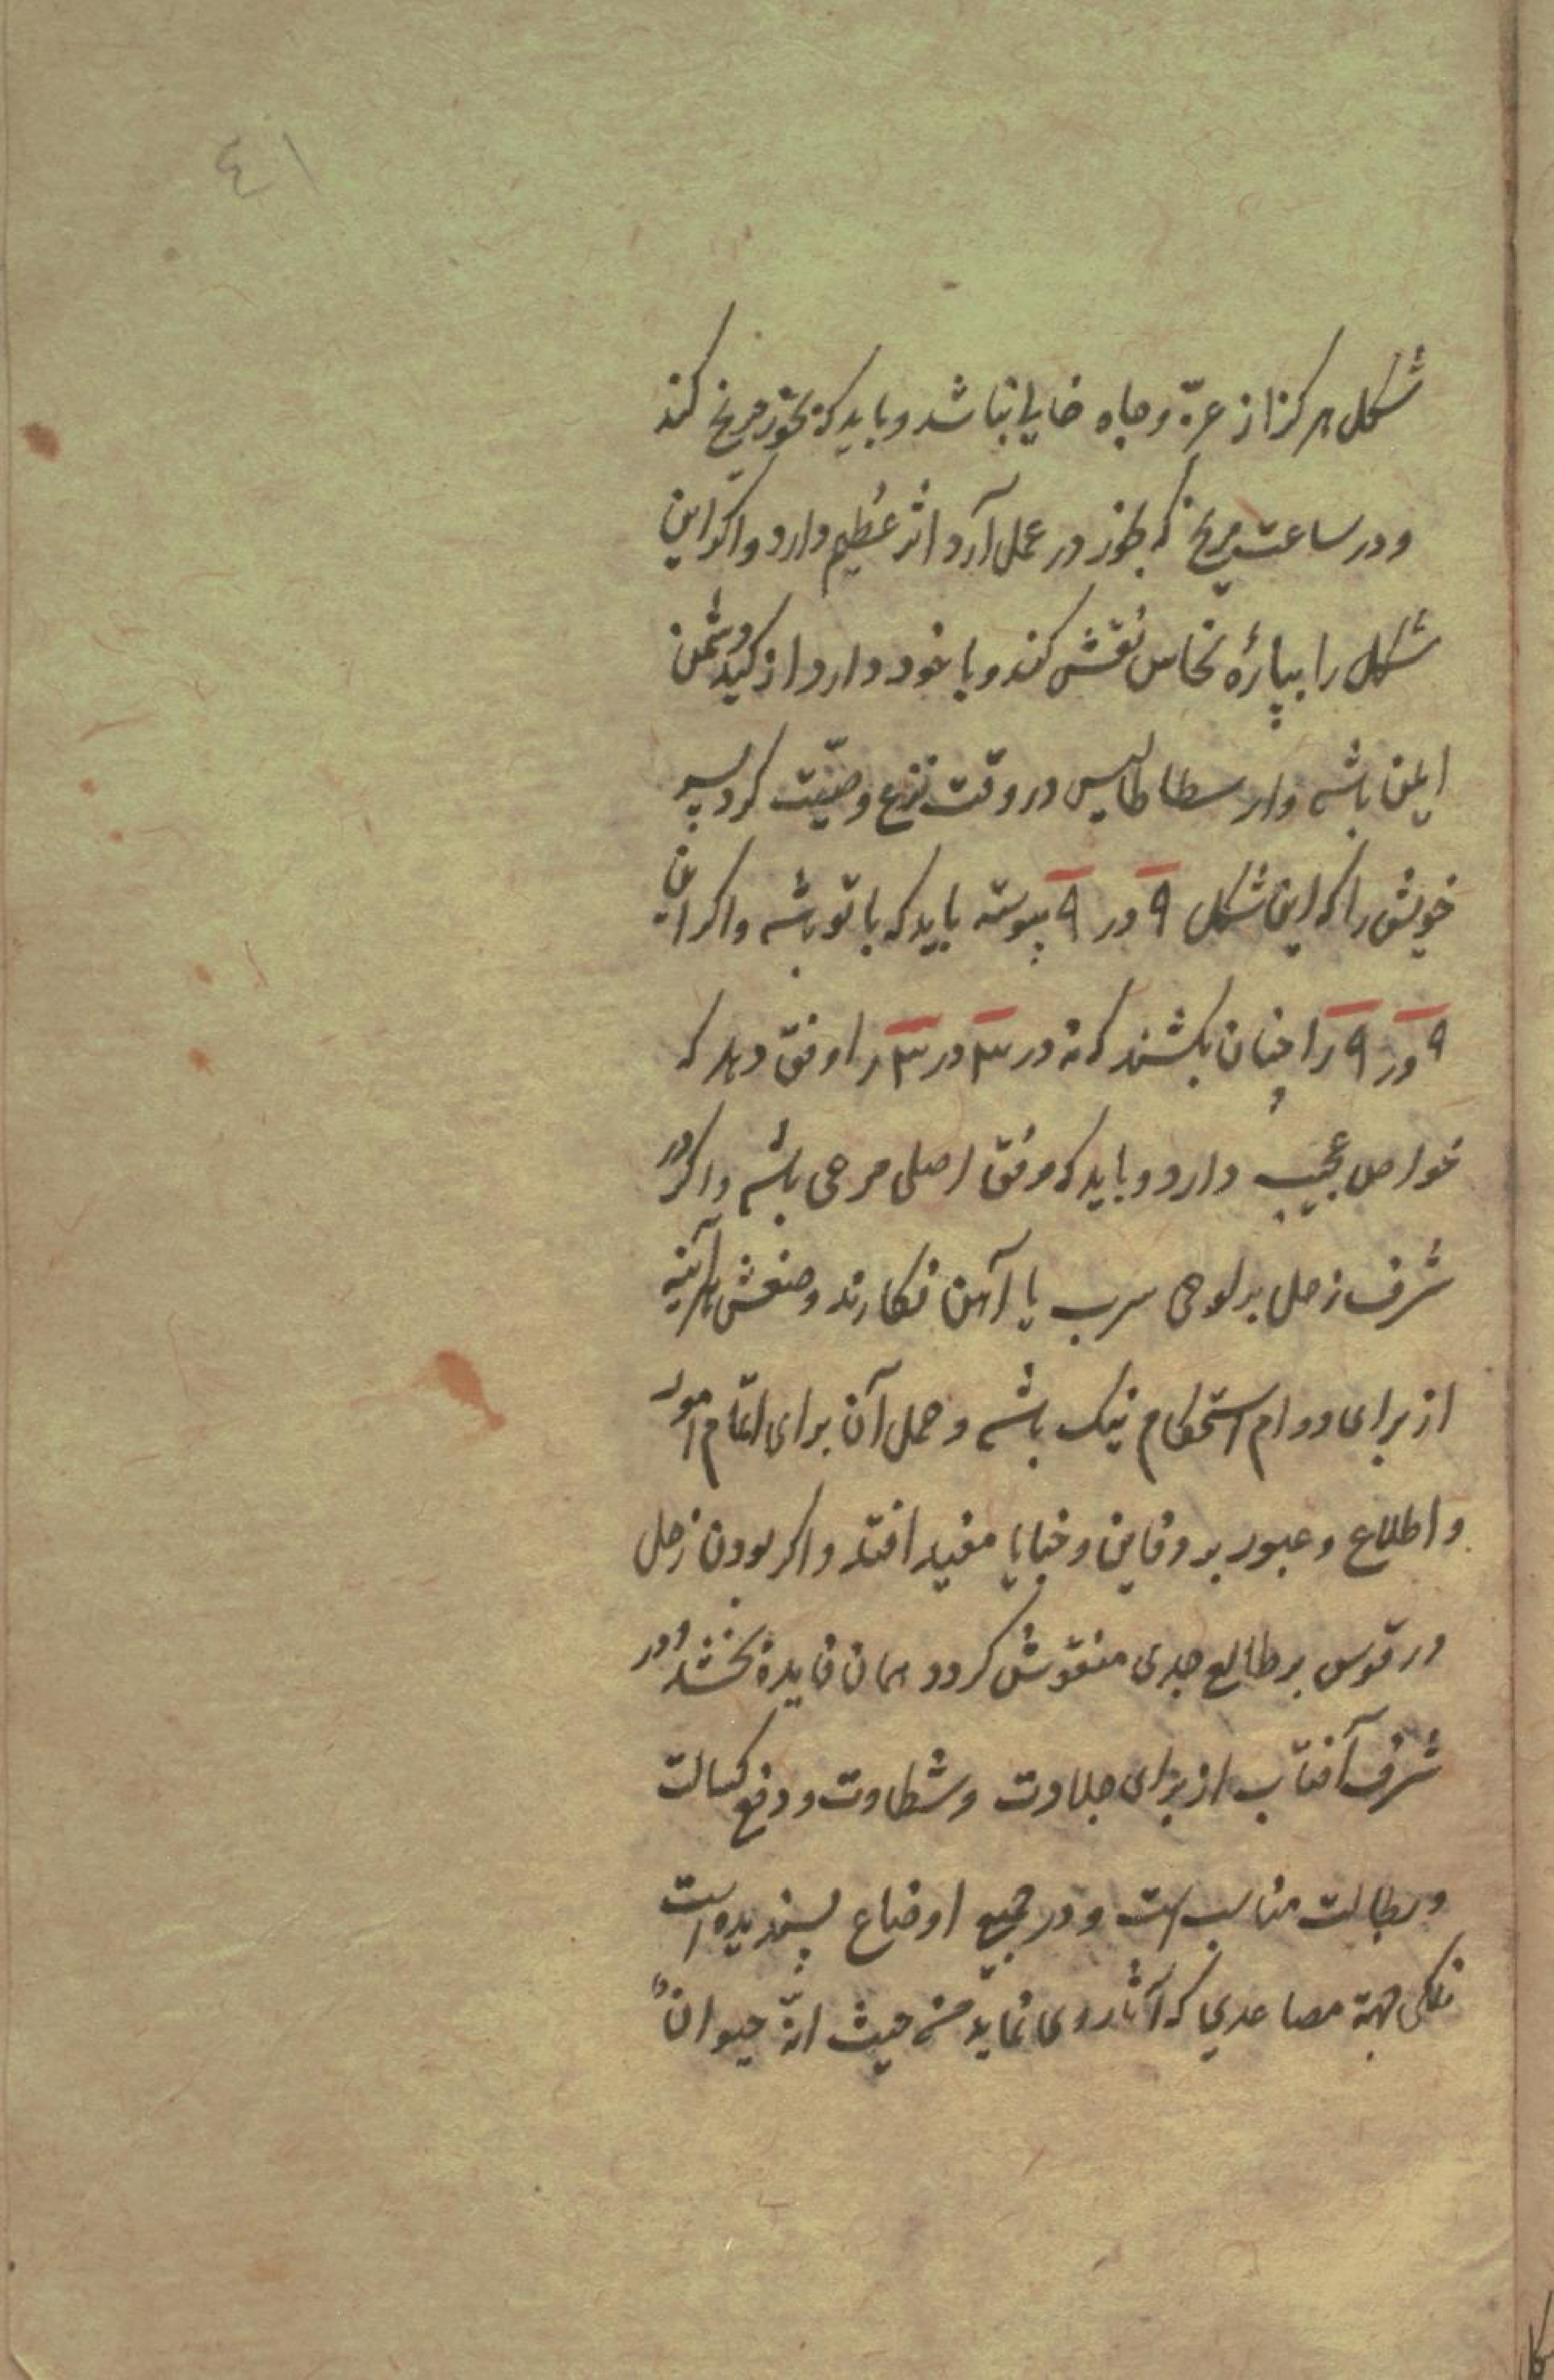 ٤١
شکل هرکز از عزّ و جاه خالی نباشد و باید که بخور مریخ کند
و در ساعت مریخ که در عمل آرد اثر عظیم دارد و اکر این
شکل را بپارهٔ نحاس نقش کند و با خود دارد از کید دشمن
ایمن باشد وارسطاطالیس در وقت نزع وصیّت کرد پسر
خویش را که این شکل ۹ در ۹ پیوسته باید که با تو باشد واکر این
۹ در ۹ را چنان بکشند که نه در ۳ در ۳ را وفق دهد که
خواص عجیب دارد و باید که وفق اصلی مرعی باشد و اکر در
شرف زحل بر لوحی سرب یا آهن نکارند و ضعش هرآینه
از برای دوام استحکام نیک باشد و حمل آن برای اتمام امور
و اطلاع و عبور بر دفاین و خبایا مفید افتد و اکر بودن زحل
در قوس بر طالع جدی منقوش کردد همان فایده بخشد و در
شرف آفتاب از برای جلادت و شطارت و دفع کسالت
و بطالت مناسب است و در جمیع اوضاع پسندیده است
لکن جهة مصاعدی که آثار روی نماید من حیث انّه حیوانٌ